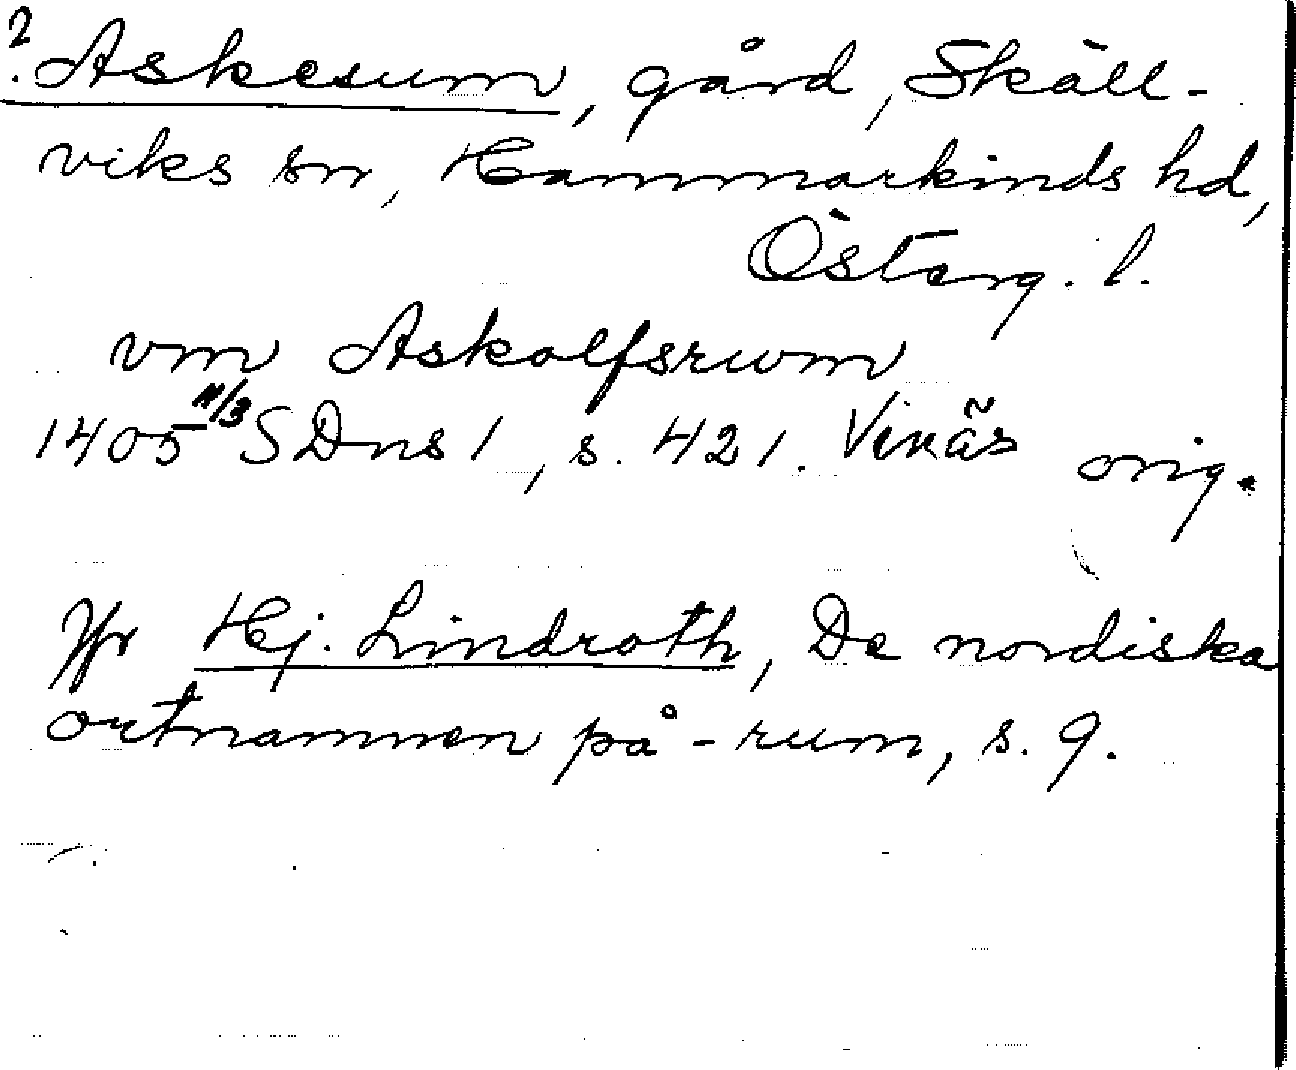 ? Askesum, gård, Skäll-
viks sn, Hammarkinds hd,
Österg. l.
vm Askolfsrwm
1405 11/3 SDns 1, s. 421. Vinäs orig.
Jfr Hj. Lindroth, De nordiska
ortnamnen på -rum, s. 9.